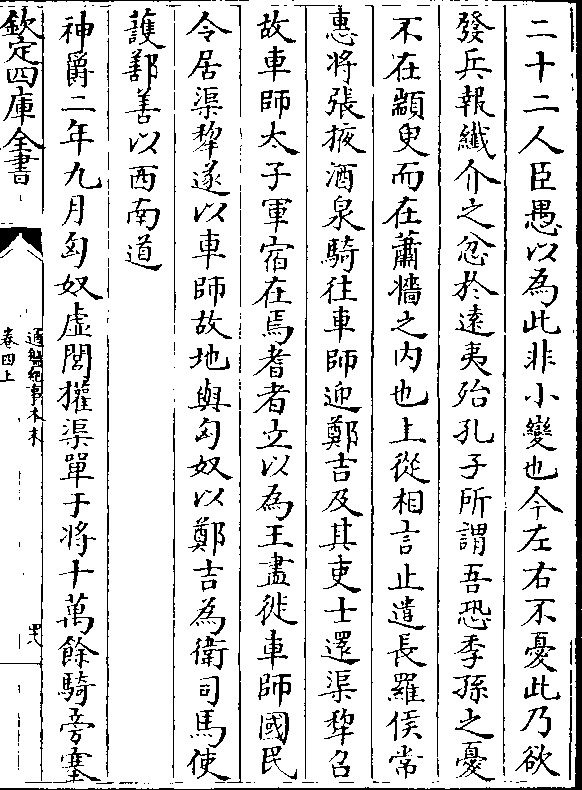 二十二人臣愚以為此非小變也今左右不憂此乃欲
發兵報纖介之忿於遠夷殆孔子所謂吾恐季孫之憂
不在顓臾而在蕭牆之内也上從相言止遣長羅侯常
惠將張掖酒泉騎往車師迎鄭吉及其吏士還渠犂召
故車師太子軍宿在焉耆者立以為王盡徙車師國民
令居渠犂遂以車師故地與匈奴以鄭吉為衛司馬使
護鄯善以西南道
神爵二年九月匈奴虛閭權渠單于將十萬餘騎旁塞
欽定四庫全書
通鑑紀事本末
卷四上